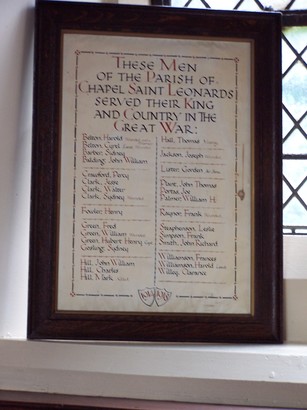 These Men
of the Parish of
Chapel Saint Leonards
served their King
and Country in the
Great War:
Belton, Harold
Belton, Cyril
Barber, Sydney
Balding, John William
Crawford, Percy
Clark, Jesse
Clark, Walter
Clark, Sydney Wounded
Fowler, Henry
Green, Fred
Green, William Wounded
Green, Hubert Henry
Gosling, Sydney
Hill, John William
Hill, Charles
Hill, Mark Killed
Hall, Thomas
Jackson, Joseph Wounded
Lutter, Gordon
Plant, John Thomas
Porter, Joe
Palmer, William H.
Raynor, Frank Wounded
Stephenson, Leslie
Simpson, Frank
Smith, John Richard
Williamson, Frances
Williamson, Harold
Willey, Clarence